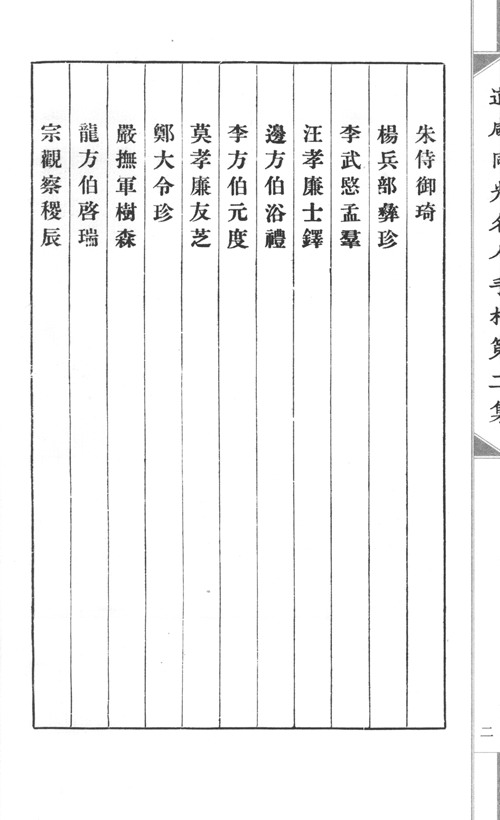 道咸同光名人手札第二集
二
朱侍御琦
楊兵部彝珍
李武愍孟羣
汪孝廉士鐸
邊方伯浴禮
李方伯元度
莫孝廉友芝
鄭大令珍
嚴撫軍樹森
龍方伯啓瑞
宗觀察稷辰